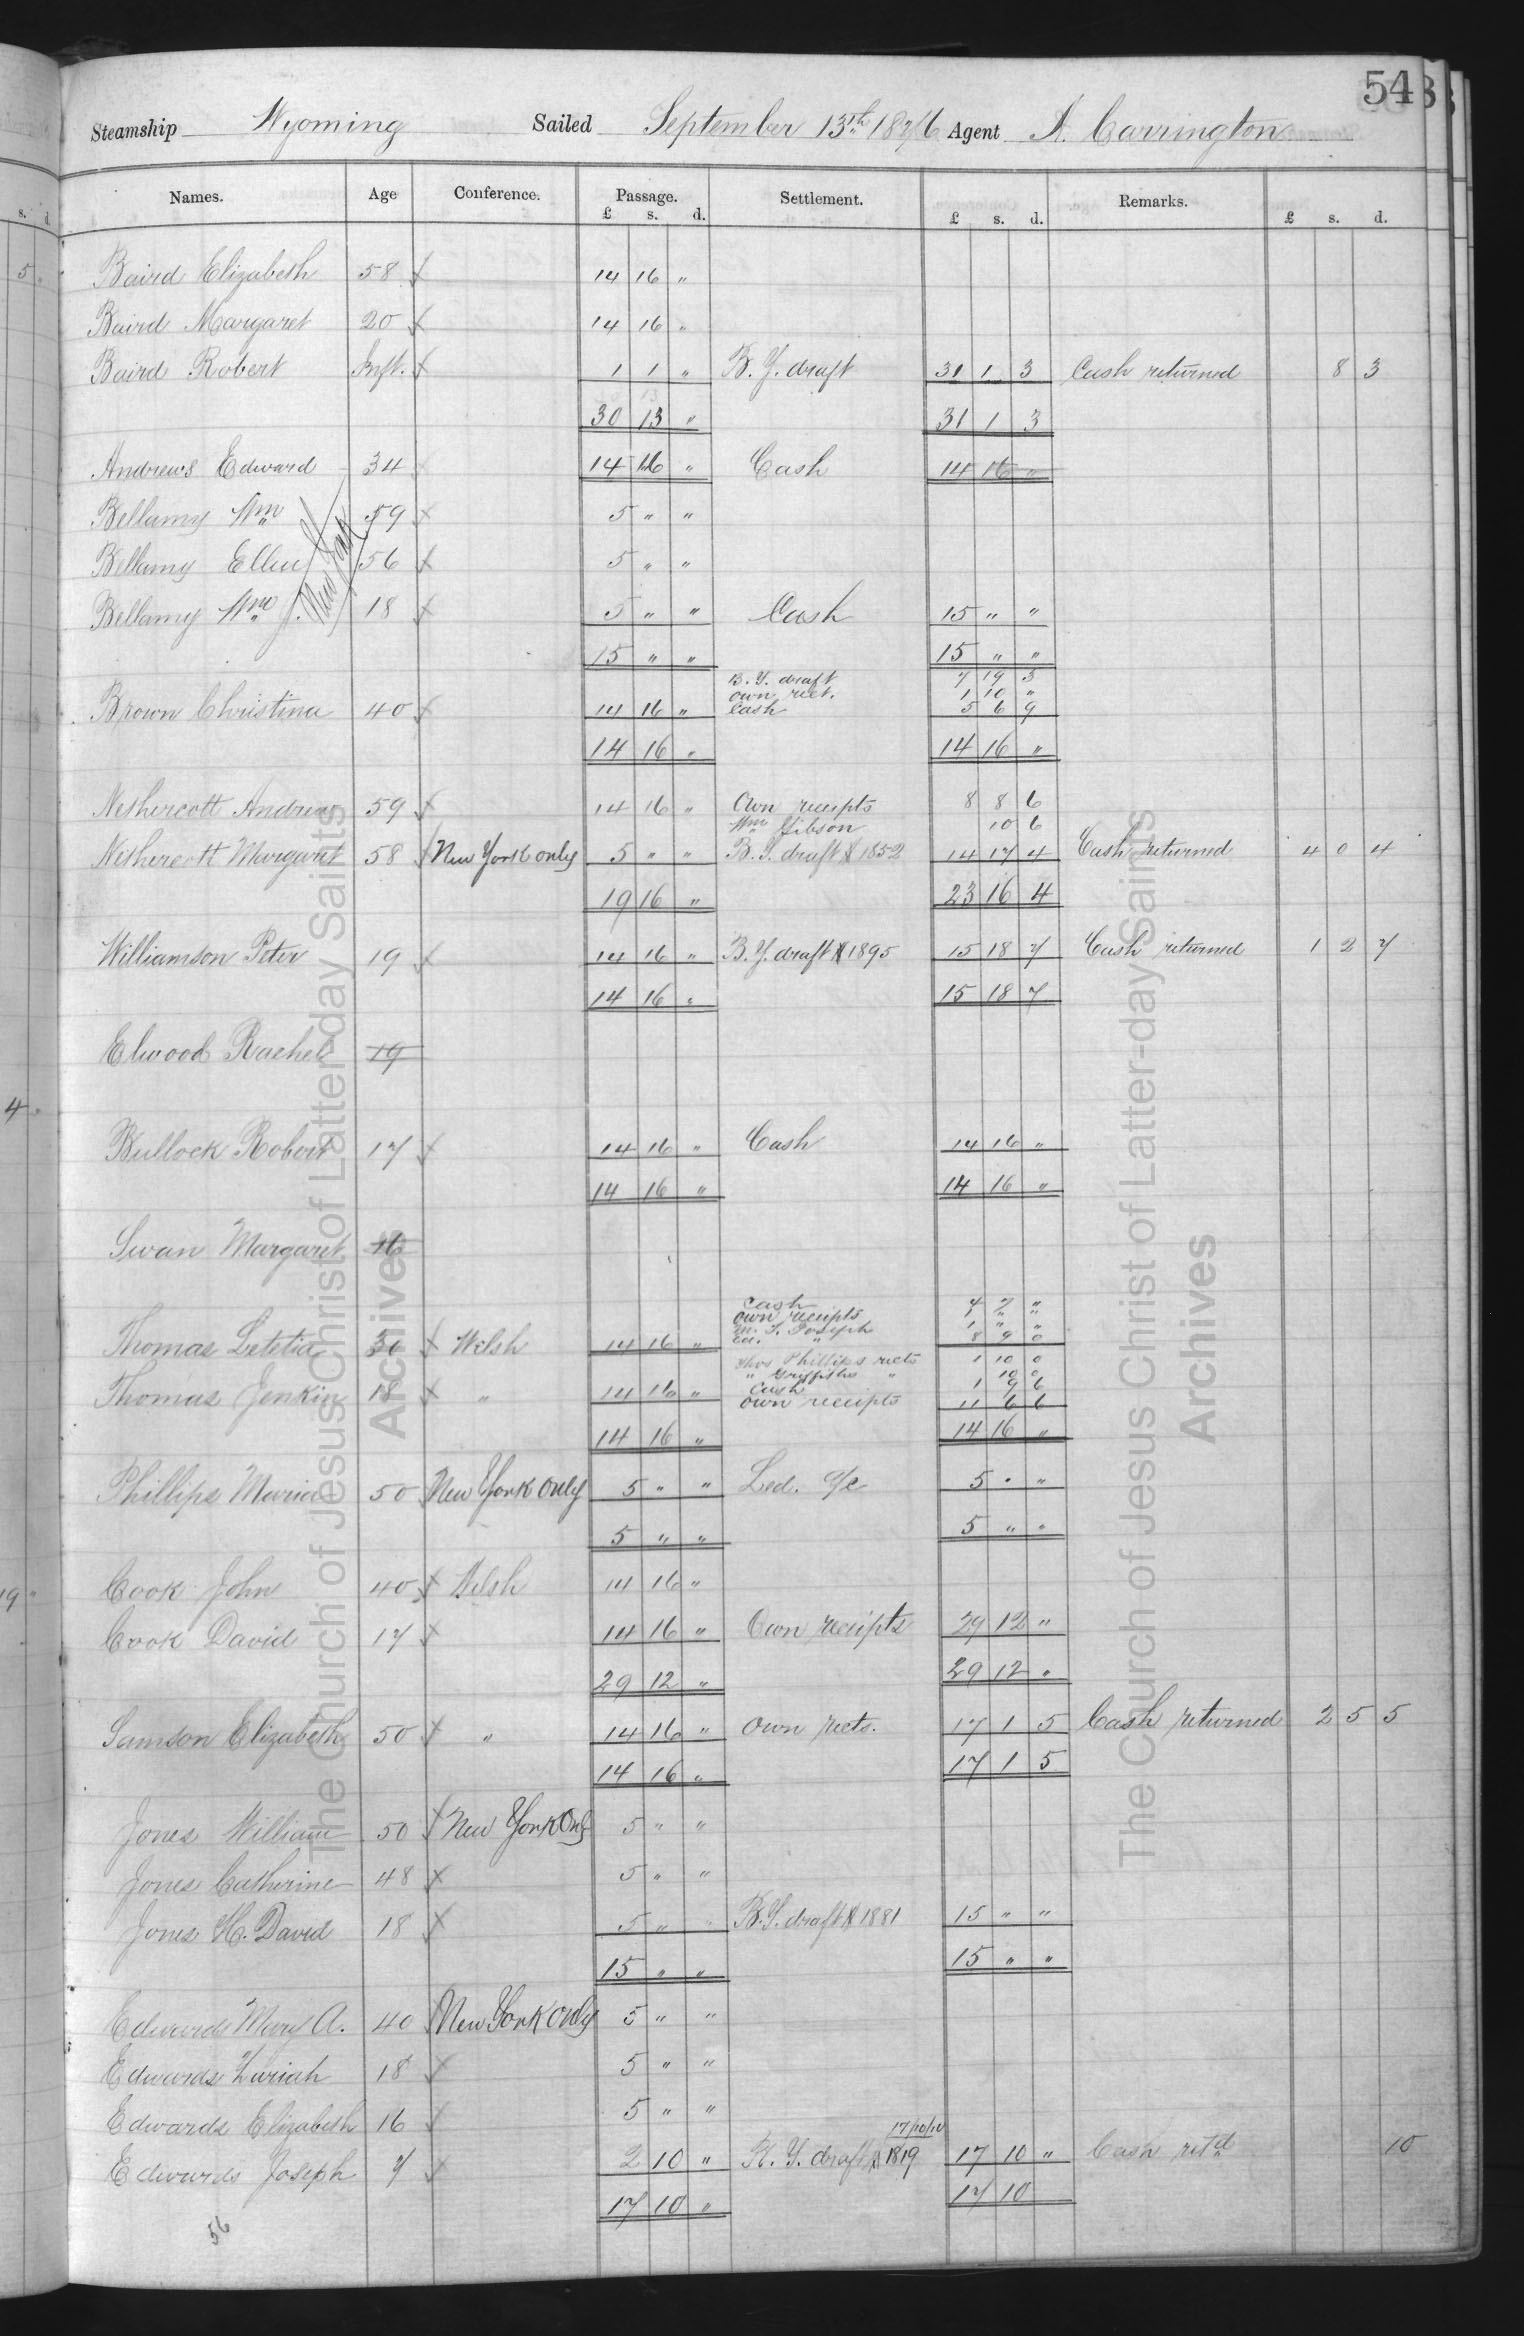 54
Steamship Wyoming Sailed September 13th 1876 Agent A. Carrington
Names. Age Conference. Passage. Settlement. Remarks.
£ s. d. £ s. d. £ s. d.
Baird Elizabeth 58 14 16 "
Baird Margaret 20 14 16 "
Baird Robert Inft. 1 1 " B. Y. draft 31 1 3 Cash returned 8 3
30 13 " 31 1 3
Andrews Edward 34 14 16 " Cash 14 16 "
Bellamy Wm 59 5 " "
Bellamy Ellen New York 56 5 " "
Bellamy Wm J. 18 5 " " Cash 15 " "
15 " " 15 " "
B. Y. draft 7 19 3
own rect. 1 10 "
Brown Christina 40 14 16 " Cash 5 6 9
14 16 " 14 16 "
Nethercott Andrew 59 14 16 " Own receipts 8 8 6
Wm Gibson 10 6
Nethercott Margaret 58 New York only 5 " " B. Y. draft $ 1852 14 17 4 Cash returned 4 0 4
19 16 " 23 16 4
Williamson Peter 19 14 16 " B. Y. draft $ 1895 15 18 7 Cash returned 1 2 7
14 16 " 15 18 7
Elwood Rachel 19
Bullock Robert 17 14 16 " Cash 14 16 "
14 16 " 14 16 "
Swan Margaret 16
Cash 4 7 "
own receipts 1 " "
Joseph 1 " "
Thomas Letetia 30 Welsh 14 16 " 8 9 0
Thos Phillips rects 1 10 0
" Griffiths " 10 0
Thomas Jenkin 18 " 14 16 " Cash 1 9 6
own receipts 11 6 6
14 16 " 14 16 "
Phillips Maria 50 New York only 5 " " Led. a/c 5 " "
5 " " 5 " "
Cook John 40 Welsh 14 16 "
Cook David 17 14 16 " Own receipts 29 12 "
29 12 " 29 12 "
Samson Elizabeth 50 " 14 16 " Own rects. 17 1 5 Cash returned 2 5 5
14 16 " 17 1 5
Jones William 50 New York Only 5 " "
Jones Catherine 48 5 " "
Jones H. David 18 5 " " B. Y. draft $ 1881 15 " "
15 " " 15 " "
Edwards Mary A. 40 New York only 5 " "
Edwards Zuriah 18 5 " "
Edwards Elizabeth 16 5 " "
17/10/10
Edwards Joseph 7 2 10 " B. Y. draft $ 1819 17 10 " Cash retd 10
17 10 " 17 10
56
5
4
19 "
s. d.
The Church of Jesus Christ of Latter-day Saints
Archives
The Church of Jesus Christ of Latter-day Saints
Archives